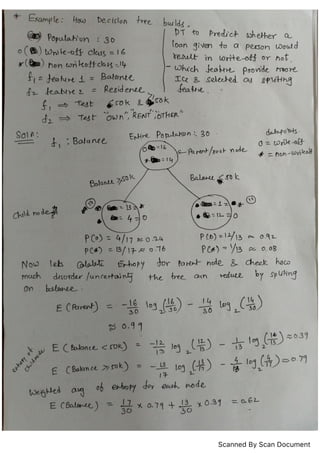 * Example: How Decision tree builds.
Population : 30
0 ( ) write-off class = 16
* ( ) non write-off class = 14
f1 = feature 1 = Balance
f2 feature 2 = Residence
f1 ⇒ Test <50K & ≥50K
f2 ⇒ Test "OWN", "RENT", "OTHER"
DT to predict whether a
loan given to a person would
result in write-off or not.
- which feature provide more
IG & selected as splitting
feature.
Soln: f1 : Balance
Entire Population : 30
0 = 16
* = 14
Parent/root node
datapoints
0 = write-off
* = non-writeoff
Balance ≥50K
Balance <50K
Child node
= 13 = *
= 4 = 0
= 1 = *
= 12 = 0
P(0) = 4/17 ≈ 0.24
P(*) = 13/17 ≈ 0.76
P(0) = 12/13 ≈ 0.92
P(*) = 1/13 ≈ 0.08
Now lets Calculate Entropy for Parent node & check how
much disorder/uncertainty the tree can reduce by spliting
on balance.
E (Parent) = -16/30 log2 (16/30) - 14/30 log2 (14/30)
≈ 0.99
entropy of children
E (Balance <50K) = -12/13 log2 (12/13) - 1/13 log2 (1/13) ≈ 0.39
E (Balance ≥50K) = -13/17 log2 (13/17) - 4/17 log2 (4/17) ≈ 0.79
Weighted avg of entropy for each node
E (Balance) = 17/30 × 0.79 + 13/30 × 0.39 = 0.62
Scanned By Scan Document